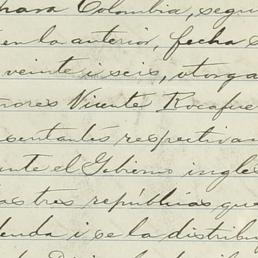 para Colombia, segu
en la anterior, fecha
veinte i seis, otorga
nores Vicente Rocafue
sentantes respectiva
nte el Gobierno ingles
las tres repúblicas que
enda i se la distribu